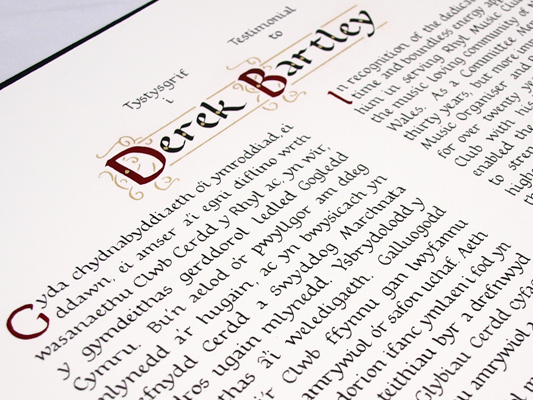 Tystysgrif
i
Testimonial
to
Derek Bartley
Gyda chydnabyddiaeth o'i ymroddiad, ei
ddawn, ei amser a'i egni diffino wrth
wasanaethu Clwb Cerdd y Rhyl ac, yn wir,
y gymdeithas gerddorol ledled Gogledd
Cymru. Bu'n aelod o'r pwyllgor am ddeg
mlynedd a'r hugain, ac yn bwysicach yn
Drefnydd Cerdd a Swyddog Marchnata
dros ugain mlynedd. Ysbrydolodd y
a'i weledigaeth. Galluogodd
i'r Clwb ffynnu gan lwyfannu
amrywiol o'r safon uchaf. Aeth
ifanc ymlaen i fod yn
byr a drefnwyd
Glybiau Cerdd
amrywiol
In recognition of the
time and boundless energy
him in serving Rhyl Music Club
the music loving community of
Wales. As a Committee
thirty years, but more
Music Organiser and
for over twenty
Club with
enabled the
to